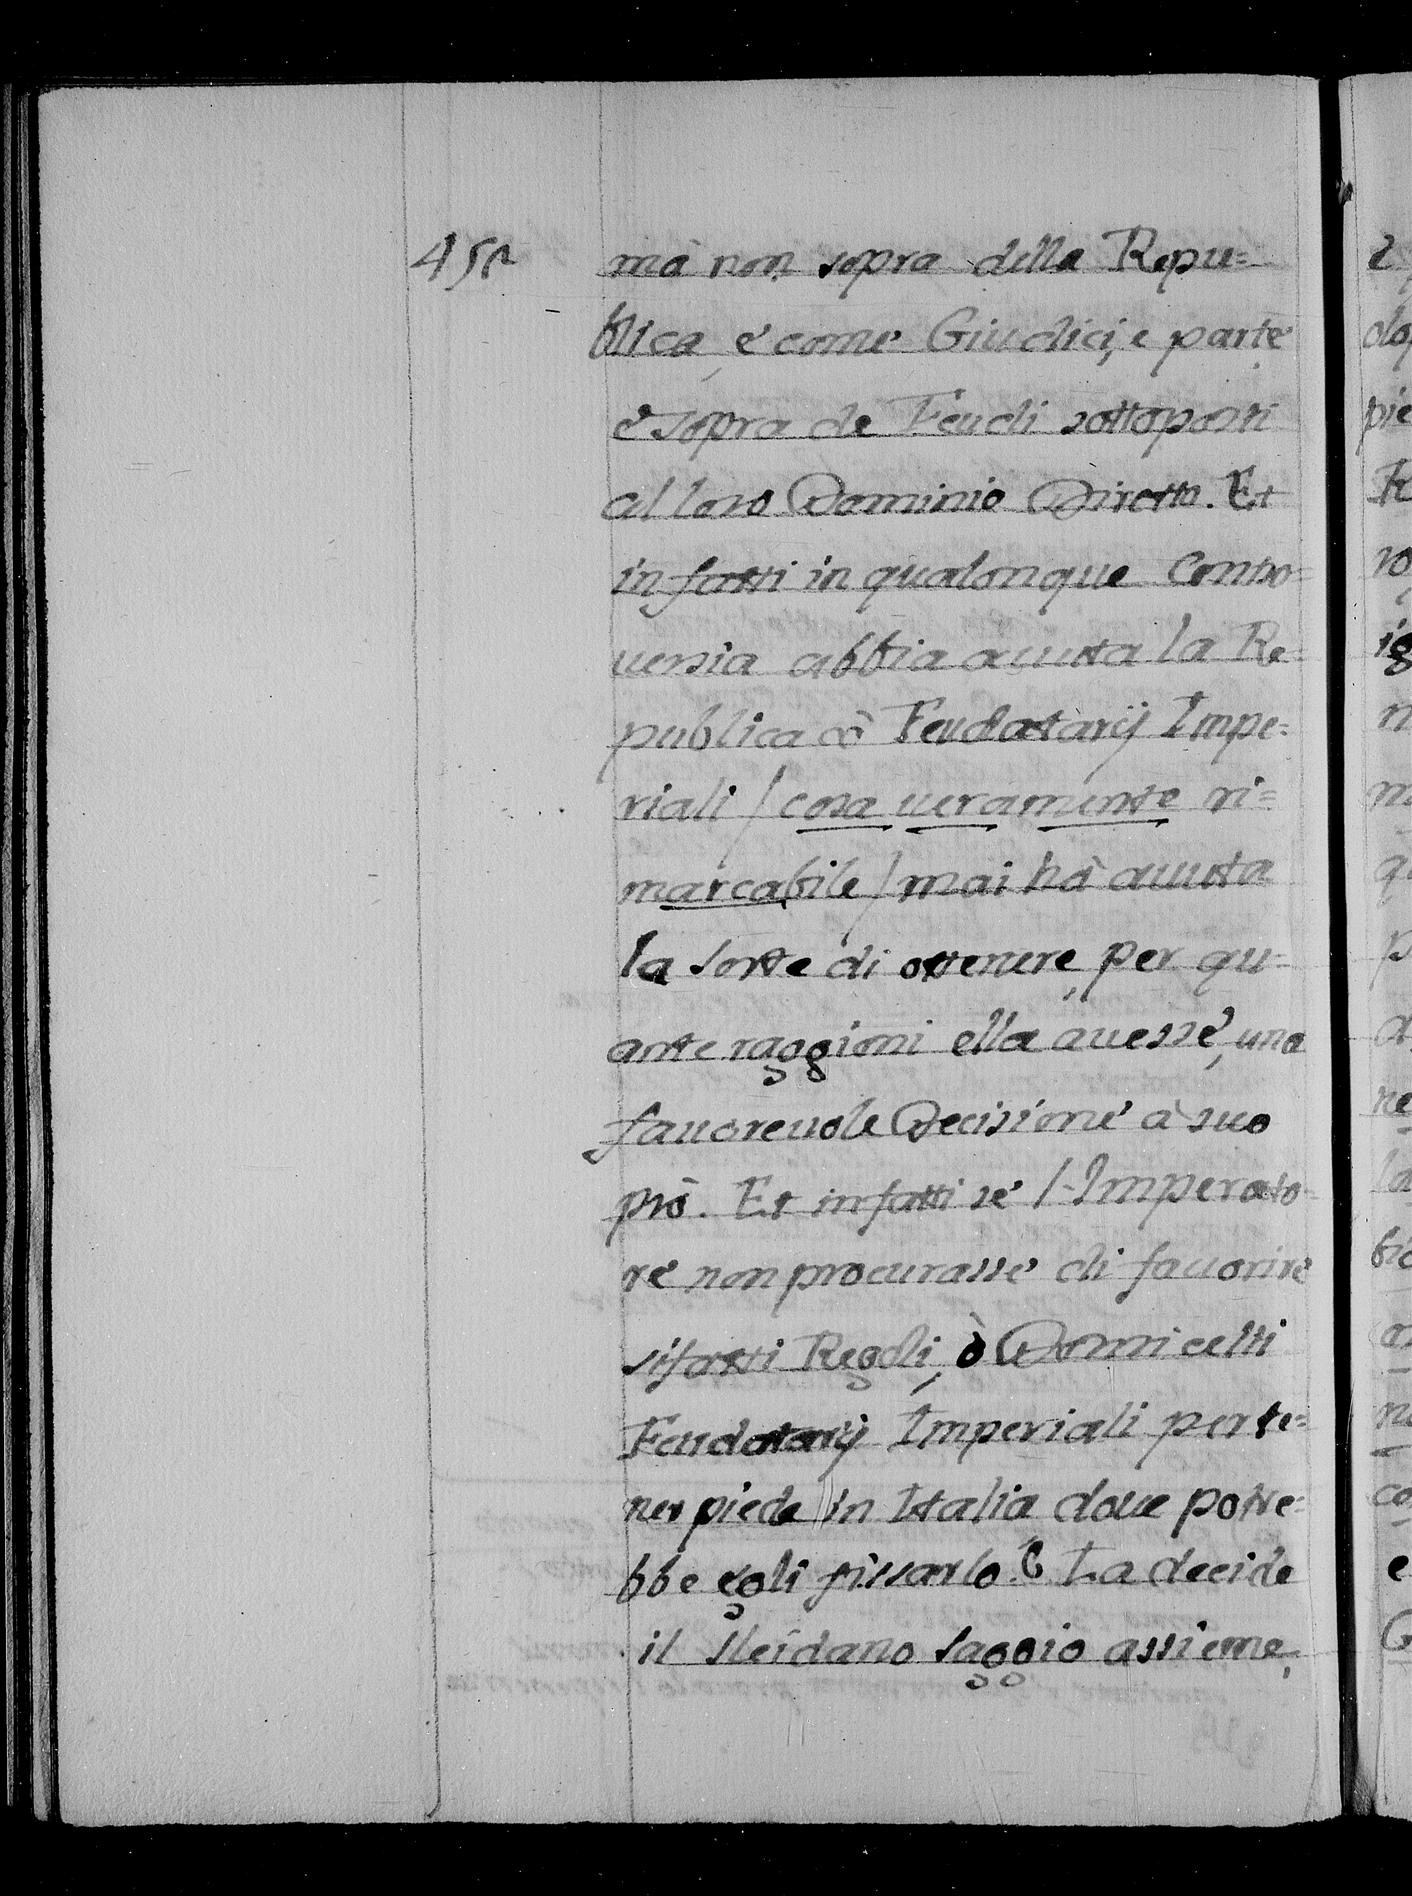 450
mà non sopra della Repu=
blica, e come Giudici, e parte
e sopra de Feudi sottoposti
al loro Dominio Diretto. Et
in fatti in qualonque Contro=
uersia abbia auuta la Re=
publica cò Feudatarij Impe=
riali / cosa ueramente ri=
marcabile / mai hà auuta
la sorte di ottenere, per qu=
ante raggioni ella auesse, una
fauoreuole Decisione à suo
prò. Et infatti se l'Imperato=
re non procurasse di fauorire
sifatti Regoli, ò Domicelli
Feudatarij Imperiali per te=
ner piede in Italia doue potre=
bbe egli fissarlo? La decide
il Sleidano saggio assieme,